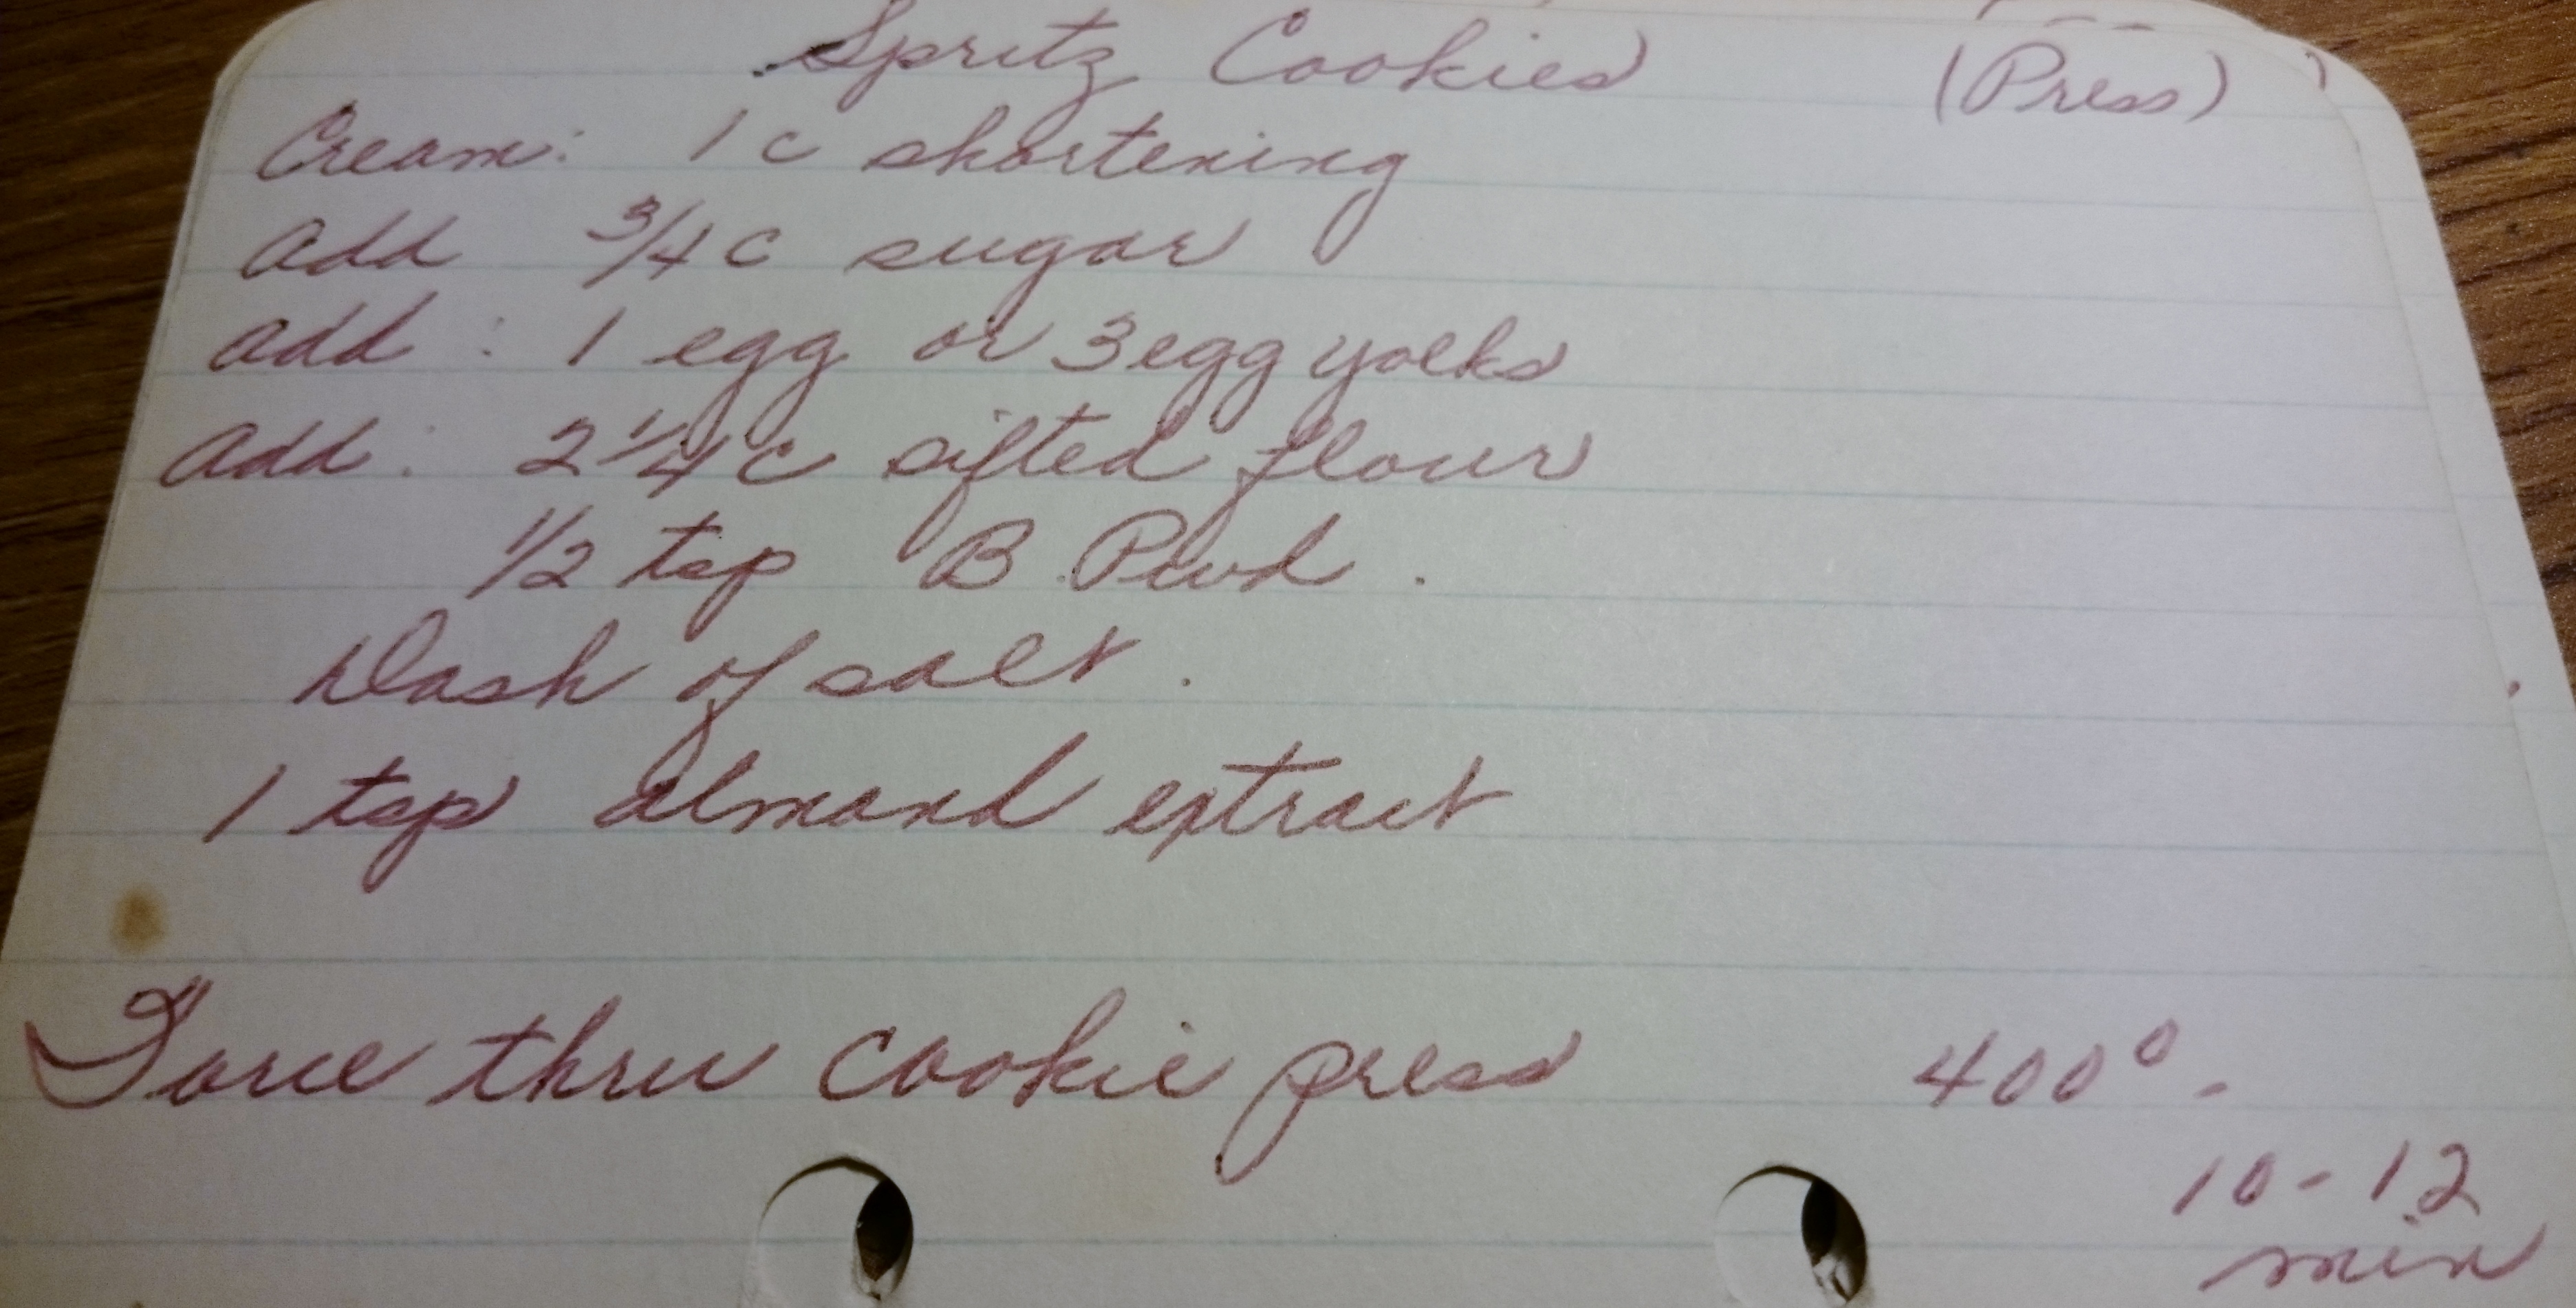 Spritz Cookies (Press)
Cream: 1 c shortening
Add 3/4 c sugar
Add: 1 egg or 3 egg yolks
Add: 2 1/4 c sifted flour
1/2 tsp B. Pwd.
Dash of salt.
1 tsp almond extract
Force thru cookie press 400° -
10-12
min